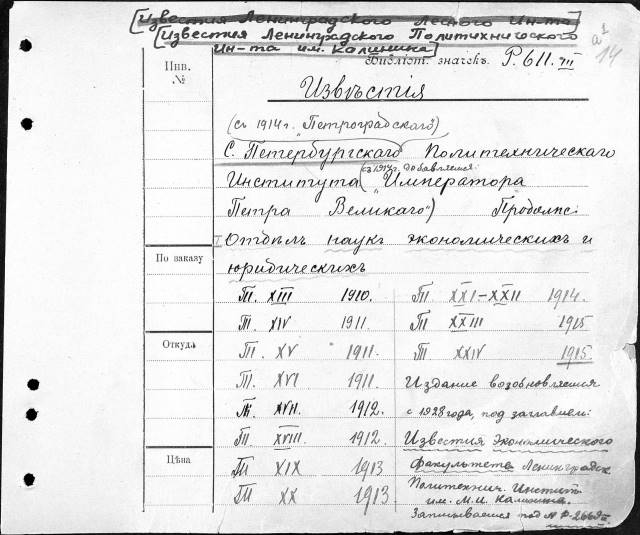 [Известия Ленинградского Лесного Ин-та]
[Известия Ленинградского Политехнического
Ин-та им. Калинина]
Инв.
№
Библіот. значекъ. P. 611. VII
а¹
14
Извѣстія
(съ 1914 г. "Петроградскаго")
С. Петербургскаго Политехническаго
Института (съ 1914 г. добавляется: "Императора
Петра Великаго") Продолж:
II Отдѣлъ наукъ экономическихъ и
По заказу
юридическихъ
Т. XIII 1910.
Т. XXI-XXII 1914.
Т. XIV 1911.
Т. XXIII 1915
Откуда
Т. XV 1911.
Т. XXIV 1915.
Т. XVI 1911.
Издание возобновляется
Т. XVII. 1912.
с 1928 года, под заглавием:
Т. XVIII. 1912.
Известия Экономического
Цѣна
Т. XIX 1913
факультета Ленинградск
Т. XX 1913.
Политехнич. Инстит
им. М.И. Калинина.
Записывается под №